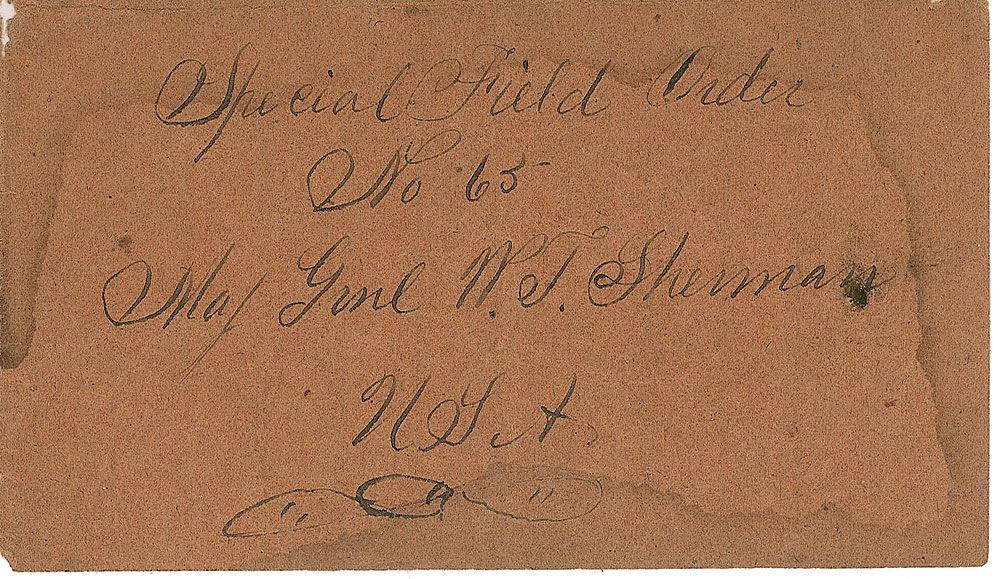 Special Field Order
No 65
Maj Genl W. T. Sherman
U S A